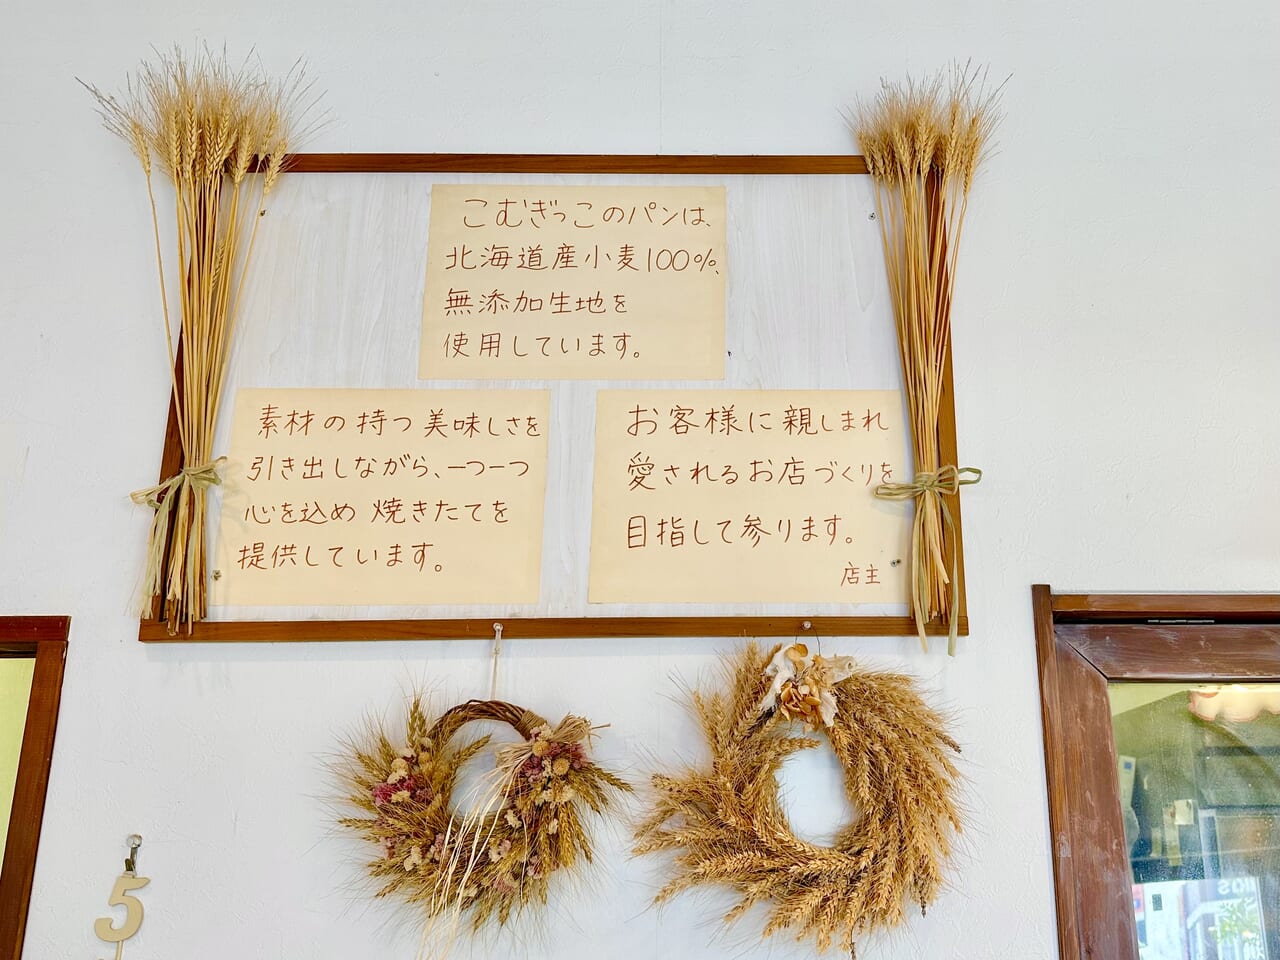 こむぎっこのパンは、
北海道産小麦100%、
無添加生地を
使用しています。
素材の持つ美味しさを
引き出しながら、一つ一つ
心を込め焼きたてを
提供しています。
お客様に親しまれ
愛されるお店づくりを
目指して参ります。
店主
5